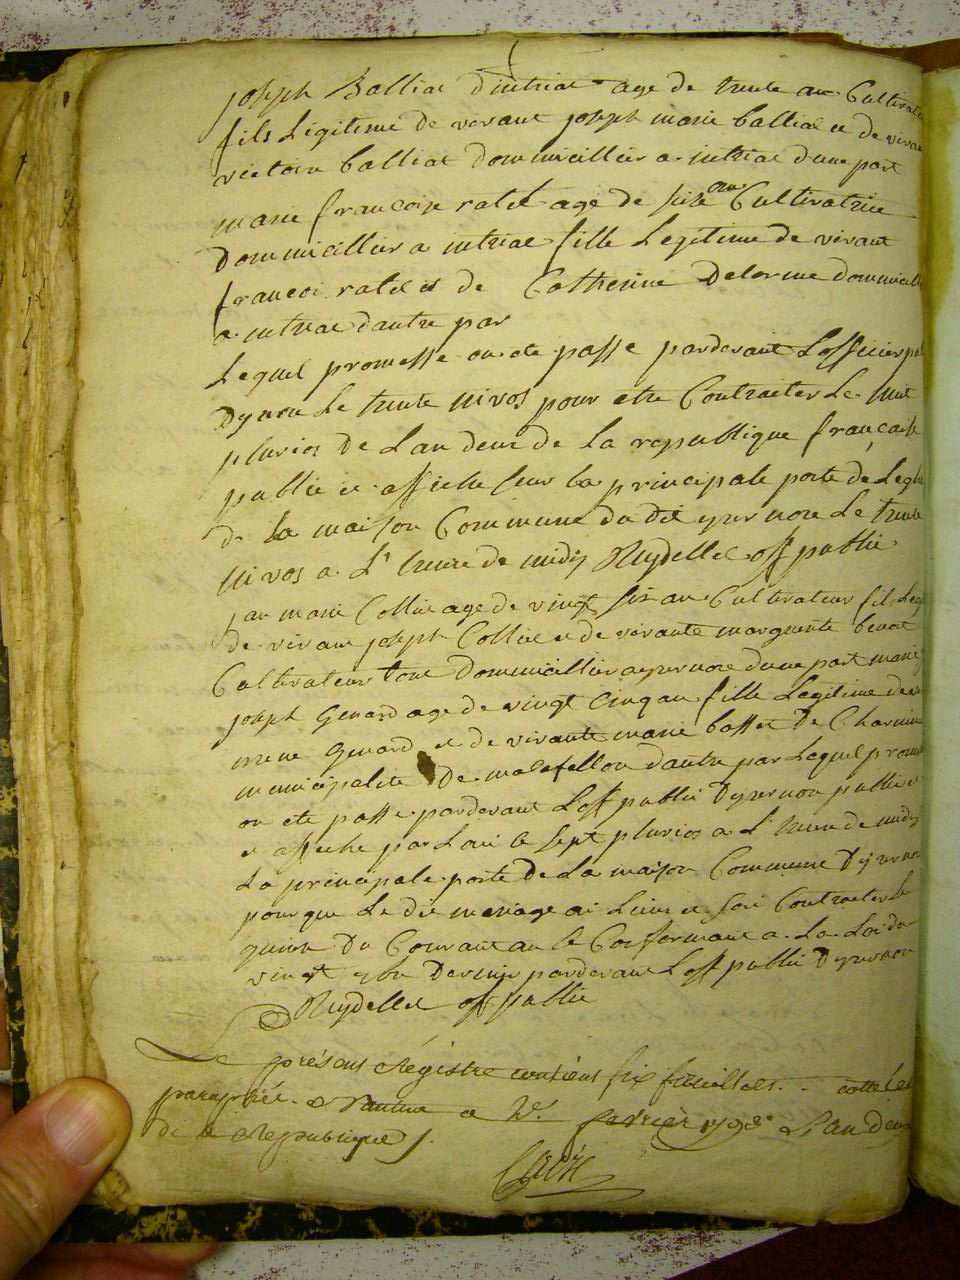 joseph Balliat d'intriat age de trente an Cultivate
fils Légitime de vivant joseph marie balliat et de vivan
victoire balliat domnicillier a intriat d'une part
marie françoise ratel age de seise an Cultivatrice
Domnicillier a intriat fille Légitime de vivant
françoi ratel et de Catherine Delorme domnicill
a intriat d'autre par
Lequel promesse on ete passe pardevant L'officier pu
Dyzernore Le trente nivos pour etre Contracter Le huit
pluvios de L'an deux de La republique française
publie et affiche sur La principale porte de L'egli
de La maison Commune du dit yzernore Le trente
nivos a L' heure de midy Ruydellet off publie
jan marie Collie age de vingt six an Cultivateur fils Leg
de vivant joseph Colliet et de vivante marguerite benoit
Cultivateur tout Domnicillier a yzernore d'une part marie
joseph Genard age de vingt cinq an fille Legitime de
Genard et de vivante marie basset De Charnin
municipalite De matafellon d'autre par Lequel prom
on ete passe pardevant L'off publie Dyzernon publie
et affiche par Lui le sept pluvios a L' heure de midy
La principale porte De La maison Commune Dyzernon
pour que Le dit mariage ai Lieu et soi Contracter Le
quinze Du Courant an se Conformant a La Loi du
vingt 7bre Dernier pardevant L'off publie Dyzernon
Ruydellet off publie
Le présent Régistre contient six feuillets cotté et
paraphée a Nantua ce 1er L'an deux
de la Republique